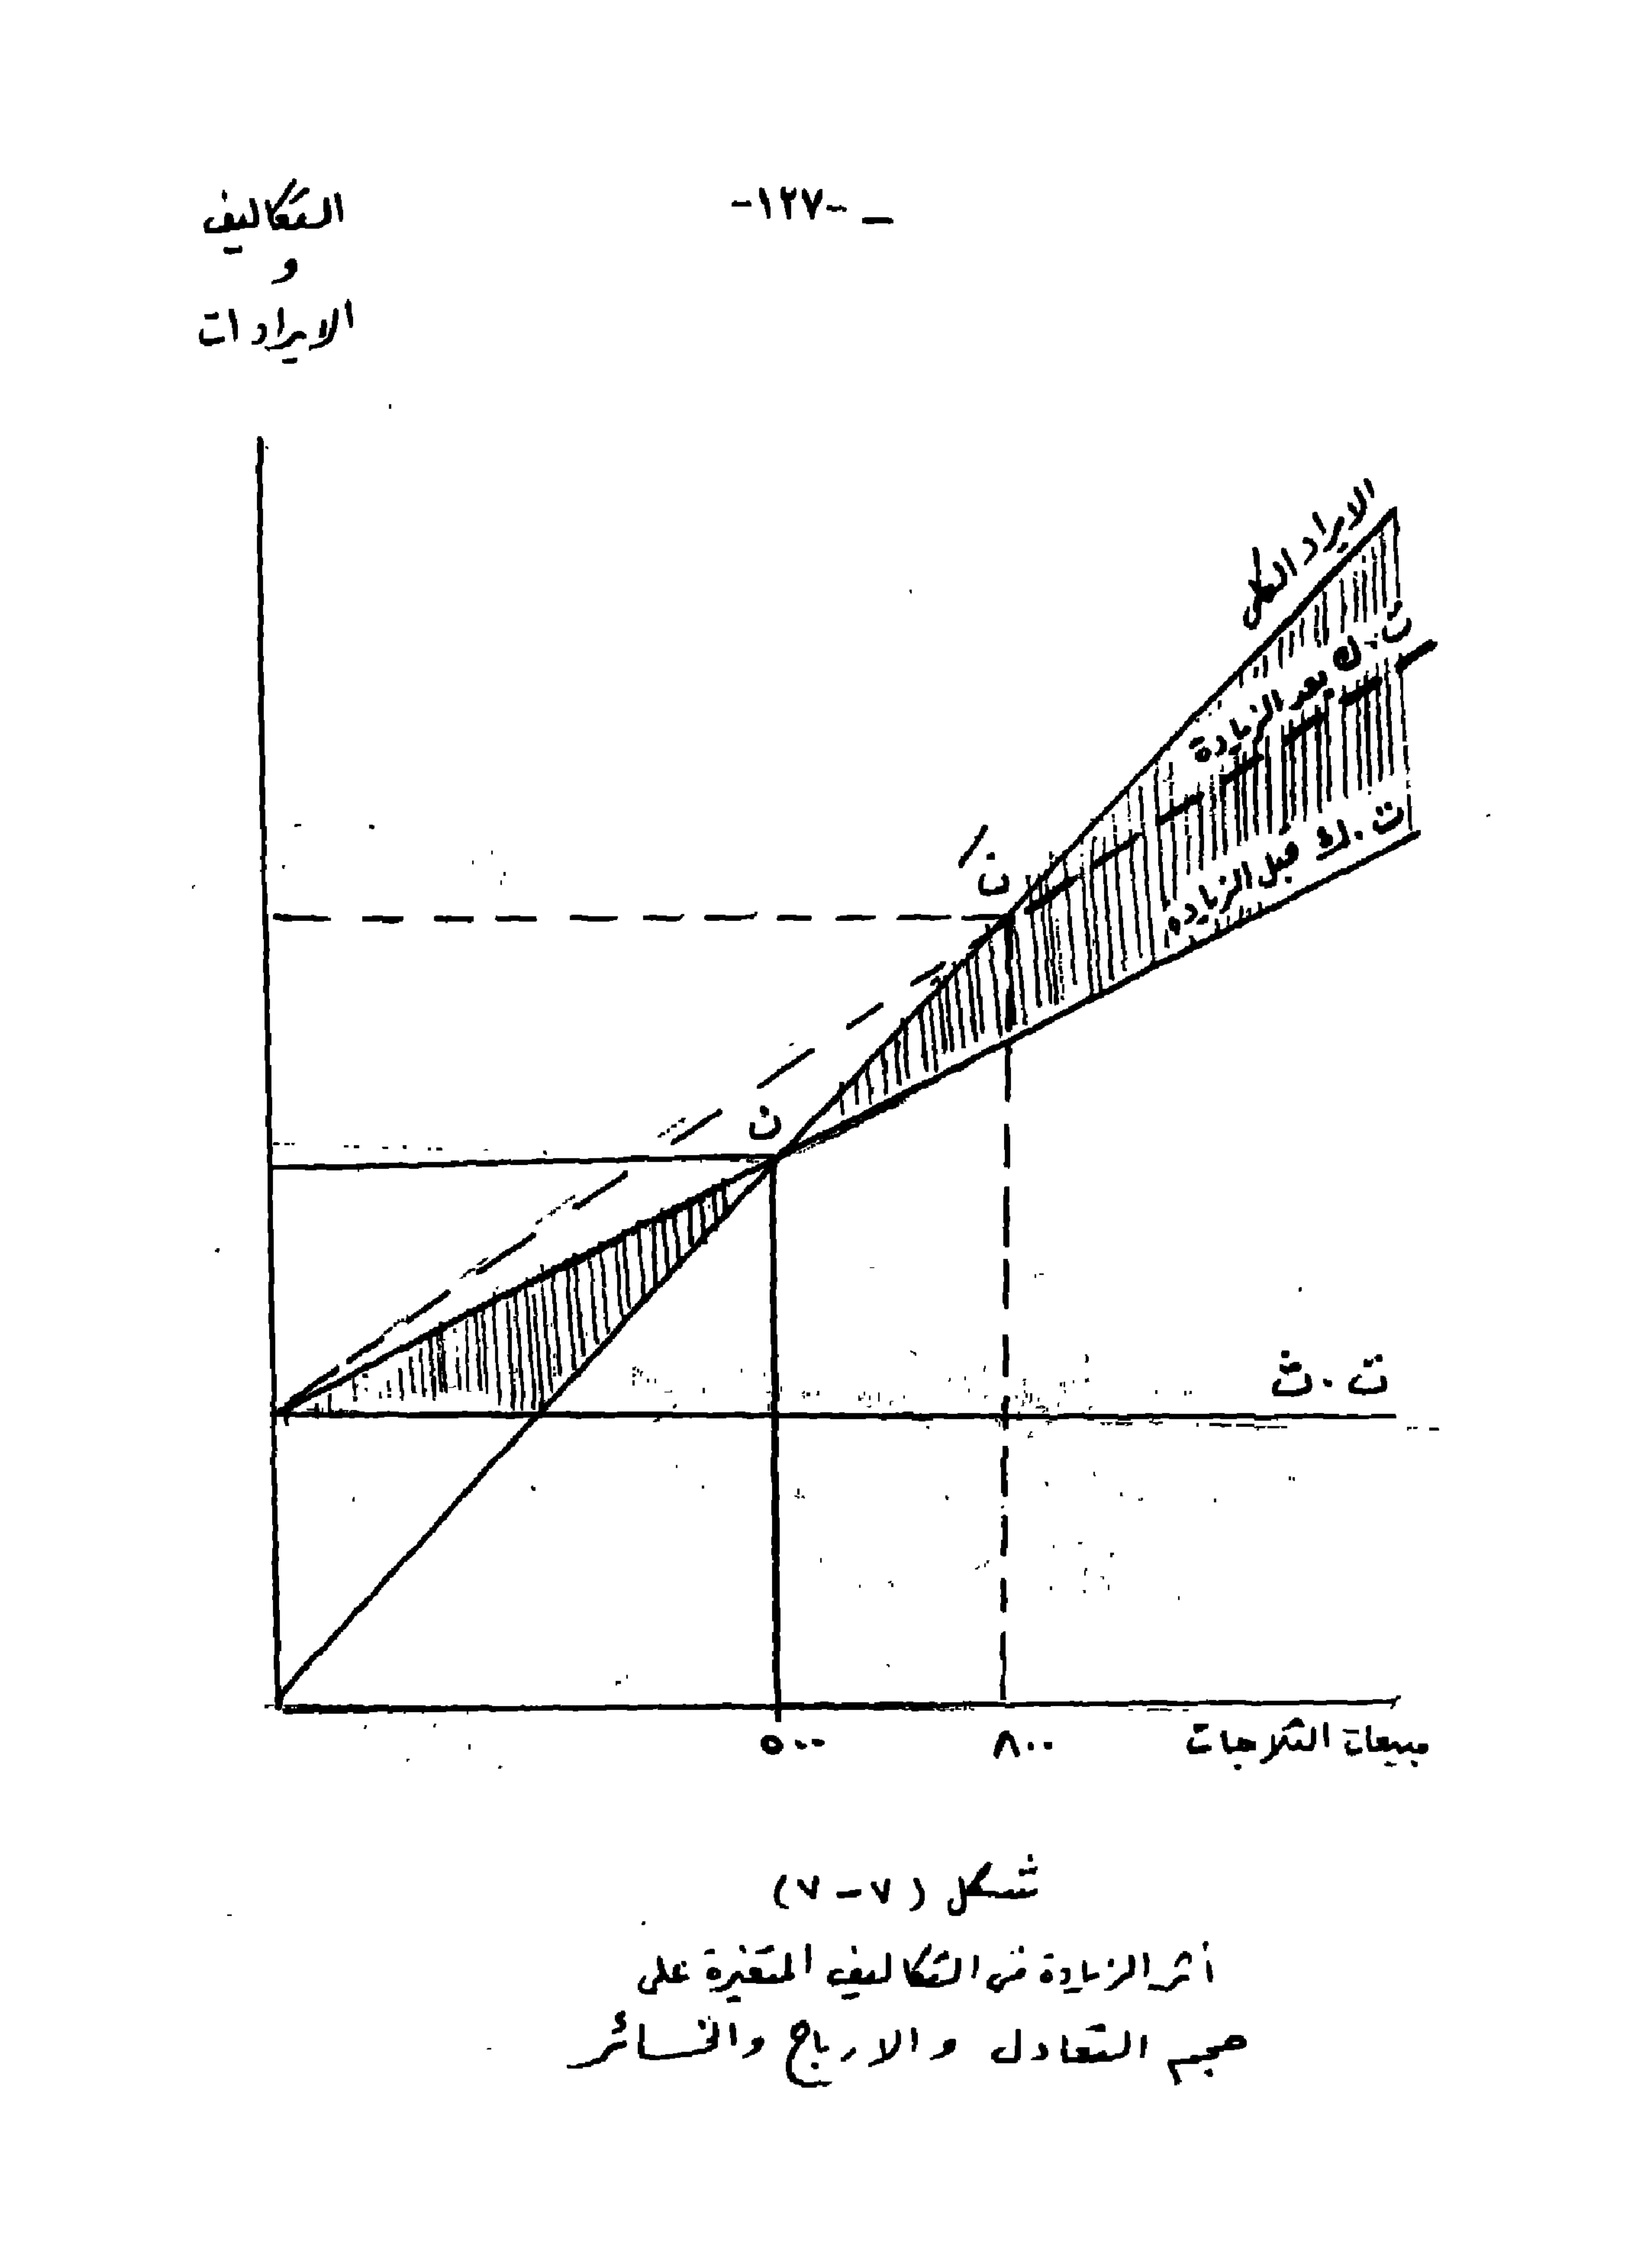 -١٢٧- -
التكاليف
و
الايرادات
الايراد الكلى
ت.ك بعد الزيادة
ت.ك قبل الزيادة
نَ
ن
ت.ث
٥٠٠
٨٠٠
مبيعات الثلاجات
شكل (٧-٧)
أثر الزيادة فى التكاليف المتغيرة على
حجم التعادل والارباح والخسائر